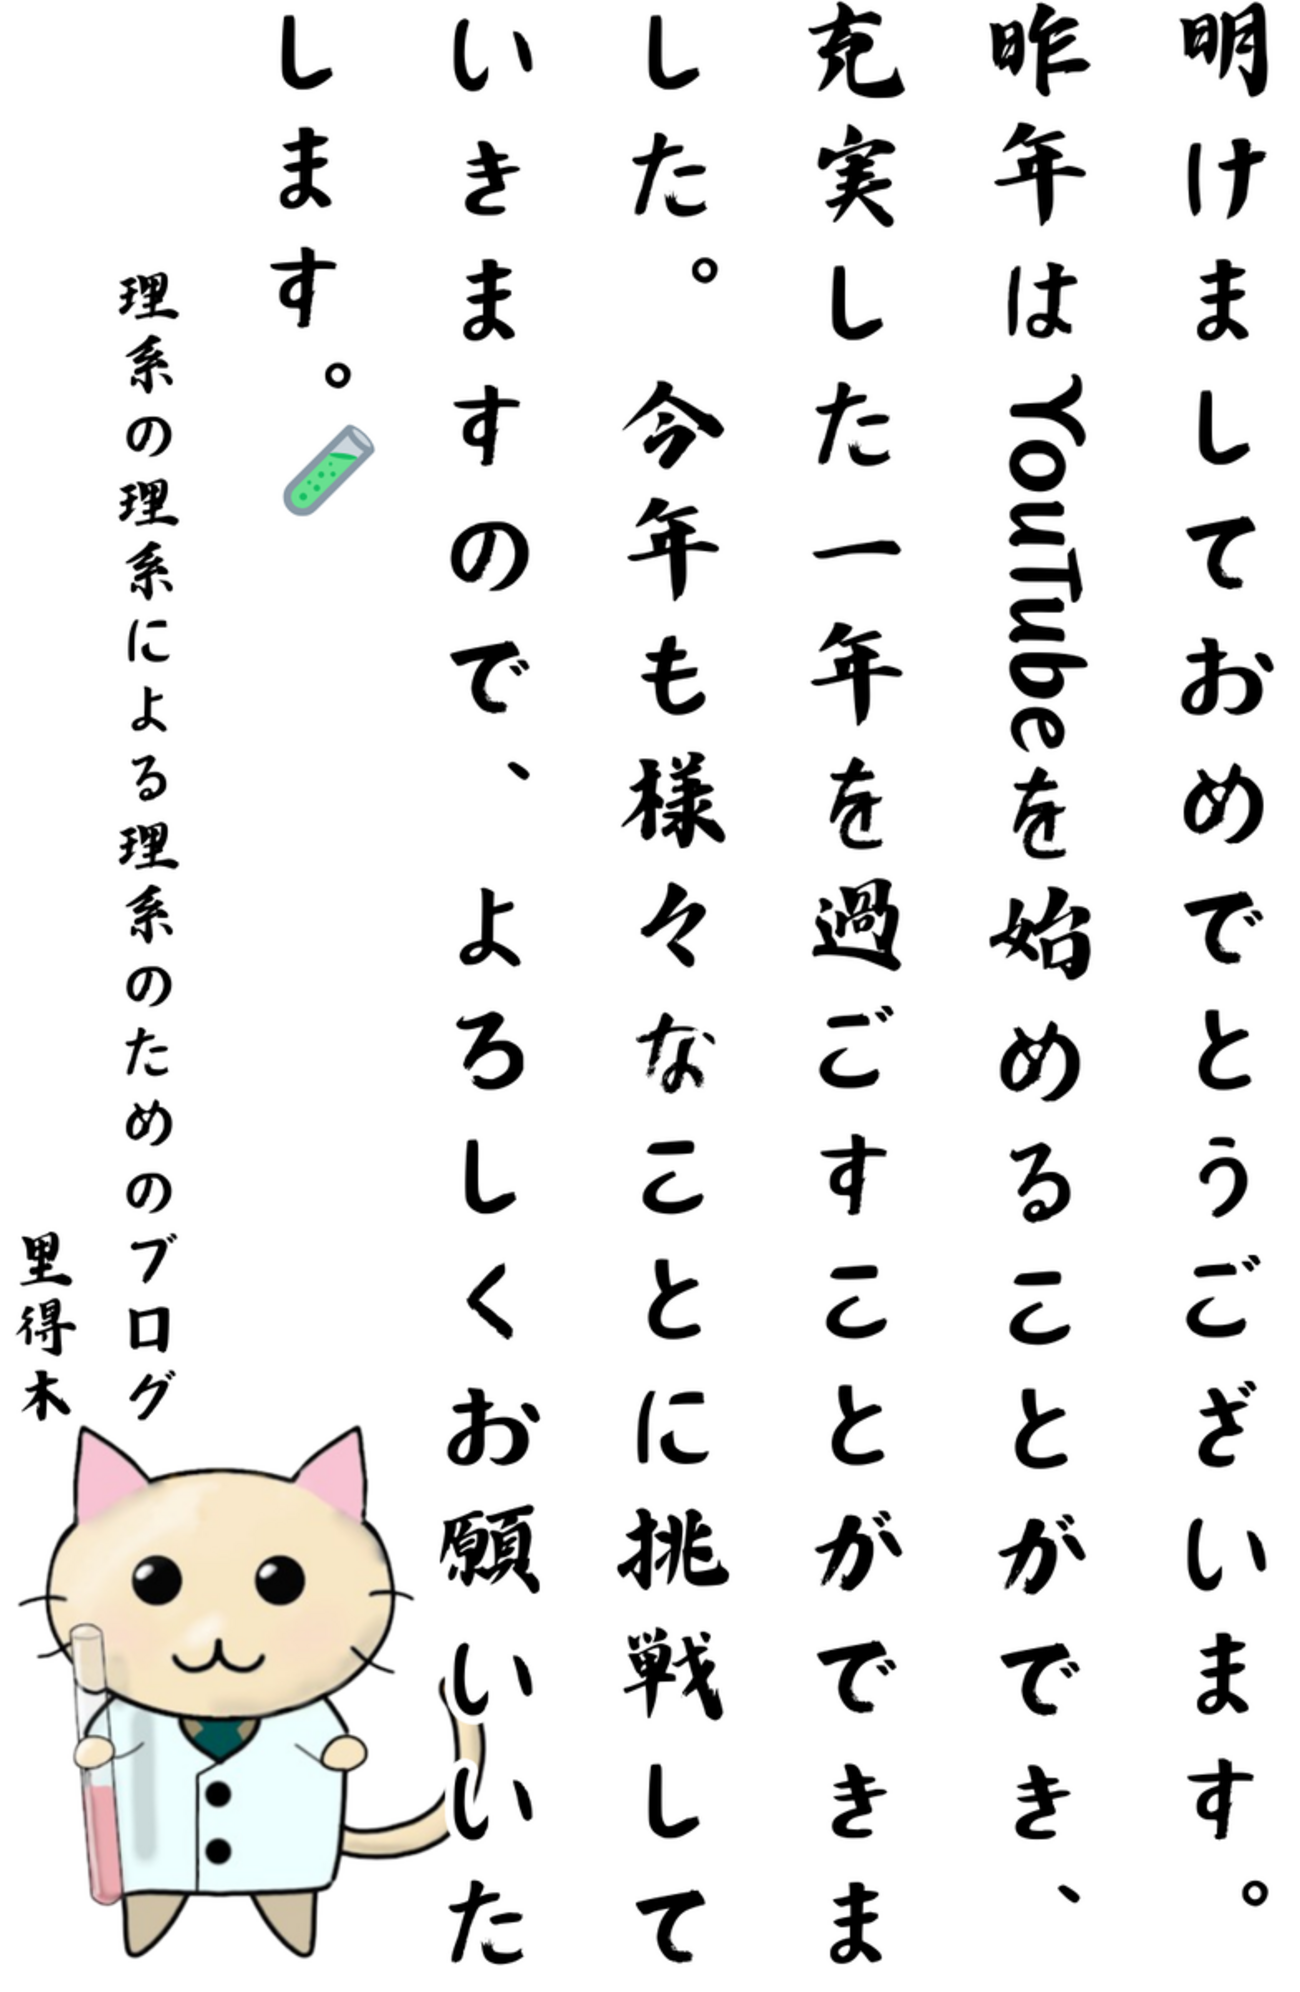 明けましておめでとうございます。
昨年はYouTubeを始めることができ、
充実した一年を過ごすことができま
した。今年も様々なことに挑戦して
いきますので、よろしくお願いいた
します。
理系の理系による理系のためのブログ
里得木